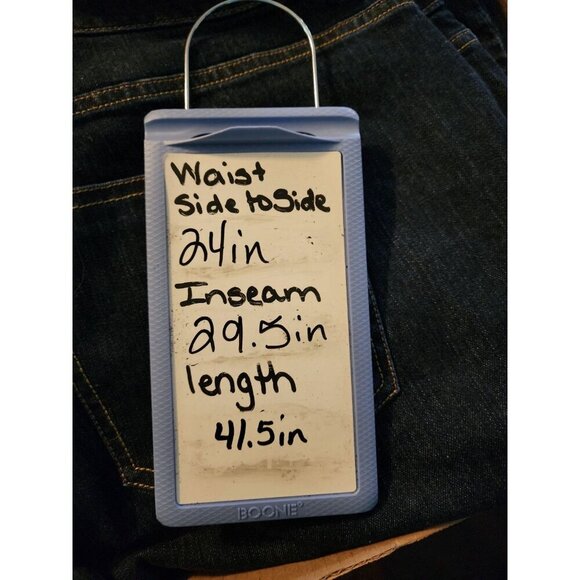 Waist
Side to Side
24in
Inseam
29.5in
length
41.5in
BOONE®